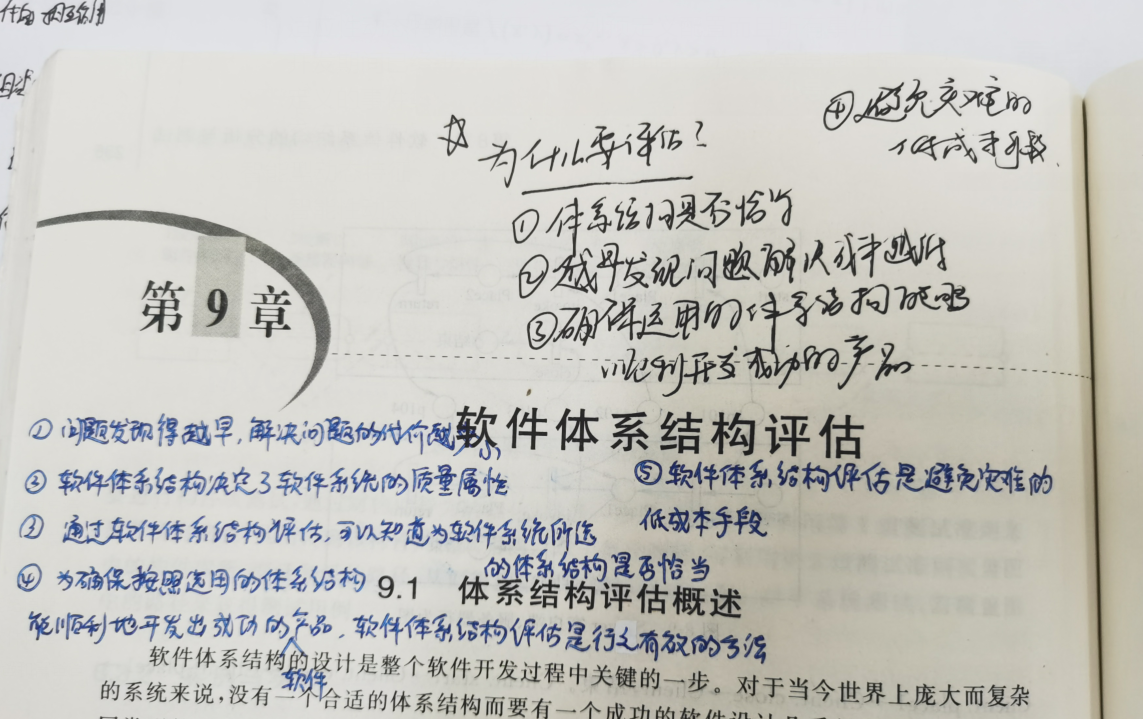 ④避免灾难的
低成本手段.
☆ 为什么要评估?
①体系结构是否恰当
②越早发现问题解决成本越低
③确保运用的体系结构能够
顺利开发成功的产品
第9章
软件体系结构评估
① 问题发现得越早,解决问题的代价越小
② 软件体系结构决定了软件系统的质量属性
③ 通过软件体系结构评估,可以知道为软件系统所选
的体系结构是否恰当
④ 为确保按照选用的体系结构
能顺利地开发出成功的软件产品,软件体系结构评估是行之有效的方法
⑤ 软件体系结构评估是避免灾难的
低成本手段
9.1 体系结构评估概述
软件体系结构的设计是整个软件开发过程中关键的一步。对于当今世界上庞大而复杂
的系统来说,没有一个合适的体系结构而要有一个成功的软件设计几乎